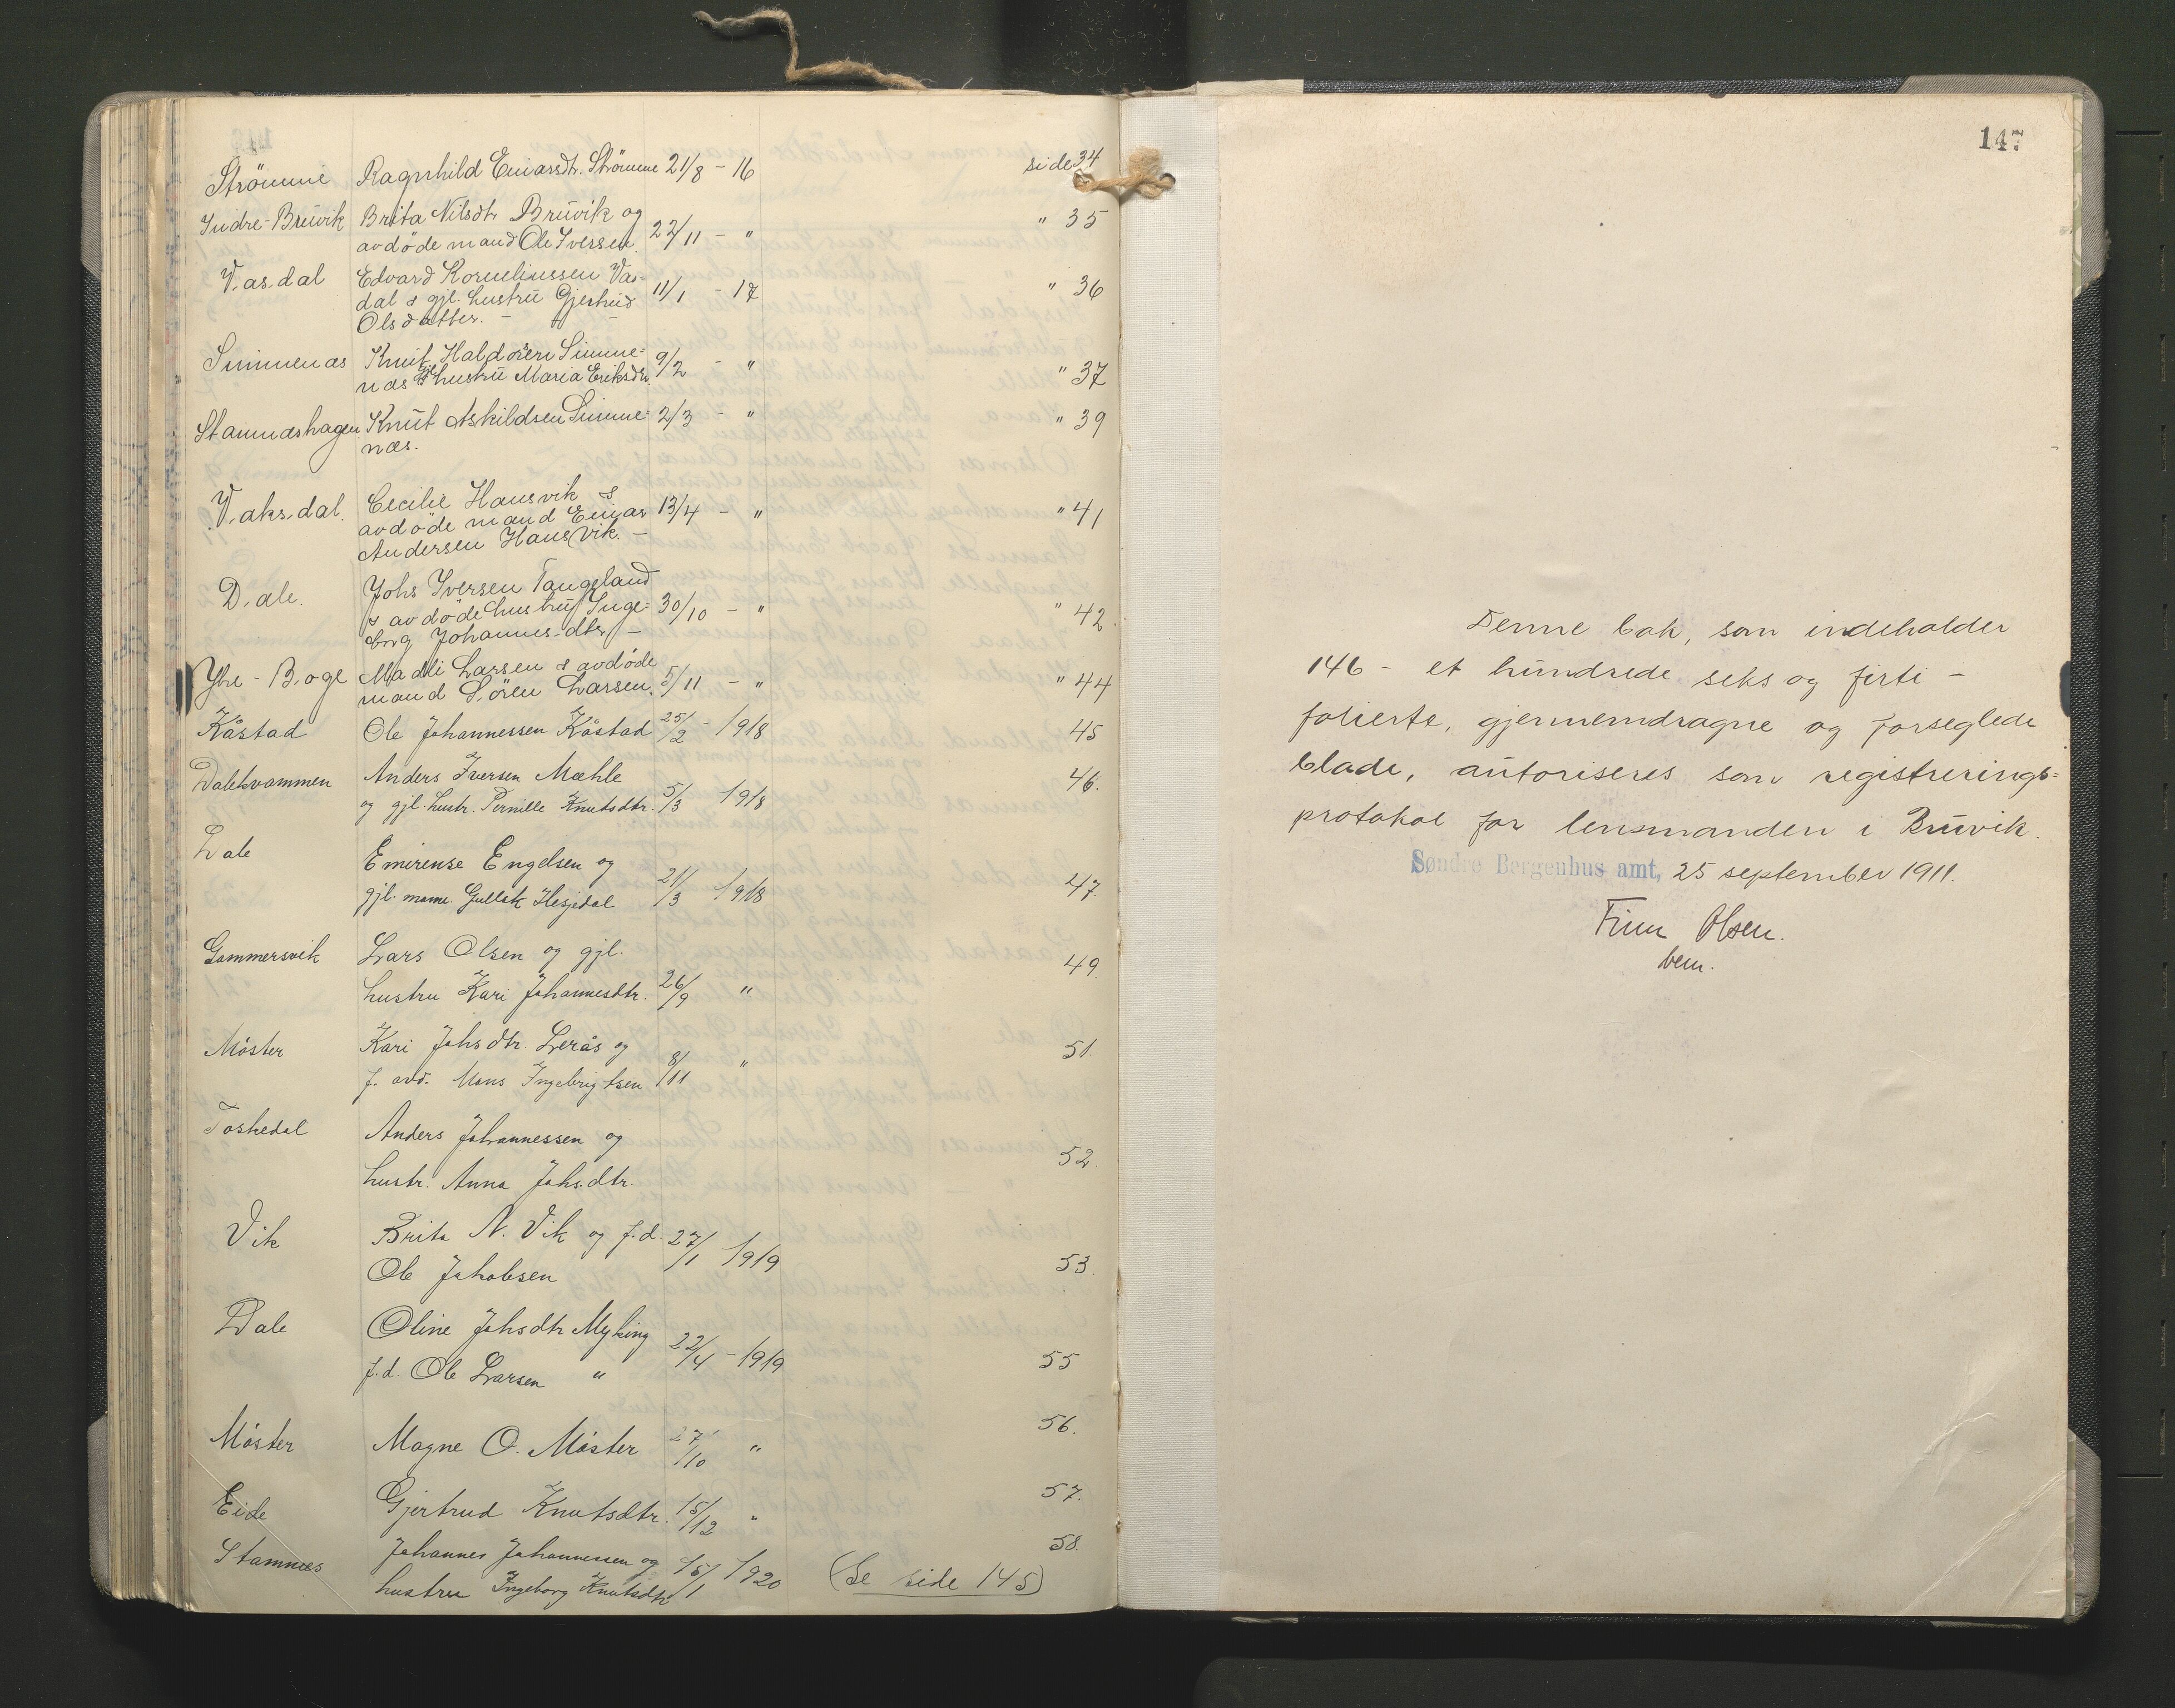 Strömme Ragnhild Einarsdtr. Strömme 21/8 - 16 side 34
Indre-Bruvik Brita Nilsdtr Bruvik og
avdöde mand Ole Iversen. 22/11 - " " 35
Vasdal Edvard Korneliussen Vas-
dal & gjl. hustru Gjertrud 11/1 - 17 " 36
Olsdatter. -
Simmenæs Knut Haldorsen Simme-
næs & gjl hustru Maria Eriksdtr. 9/2 - " " 37
Stamnæshagen Knut Askildsen Simme- 2/3 - " " 39
næs.
Vaksdal. Cecilie Hansvik &
avdöde mand Einar 13/4 - " " 41
Andersen Hansvik. -
Dale. Johs Iversen Tangeland
& avdöde hustru Inge- 30/10 - " " 42
borg Johannes-dtr. -
Ytre-Boge Madli Larsen & avdöde
mand Sören Larsen. 5/11 - " " 44
Kåstad Ole Johannessen Kåstad 25/2 - 1918 45
Dalekvammen Anders Iversen Mæhle 46.
og gjl. hustr. Pernille Knutsdtr. 5/3 1918
Dale Emirense Engelsen og
gjl. mann. Gullak Hesjedal 21/3 1918 47.
Gammersvik Lars Olsen og gjl. 49.
hustru Kari Johannesdtr. 26/9 "
Måster Kari Johsdtr. Lerås og 51.
f. avd. Mons Ingebrigtsen 8/11 "
Toskedal Anders Johannessen og
hustr. Anna Johs.dtr. 52.
Vik Brita N. Vik og f.d. 27/1 1919
Ole Jakobsen 53.
Dale Oline Johsdtr Myking
f.d. Ole Larsen " 22/4 - 1919 55
Måster Magne O. Måster 27/10 " 56.
Eide Gjertrud Knutsdtr. 15/12 " 57.
Stamnes Johannes Johannessen og 58.
hustru Ingeborg Knutsdtr 15/1 1920 (Se side 145)
147
Denne bok, som indeholder
146 - et hundrede seks og firti -
folierte, gjennemdragne og forseglede
blade, autoriseres som registrerings-
protokol for lensmanden i Bruvik.
Søndre Bergenhus amt, 25 september 1911.
Finn Olsen.
bem.